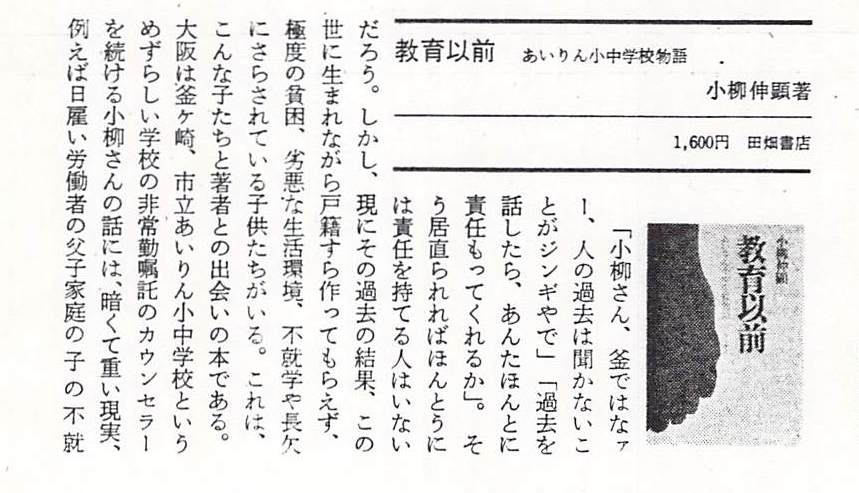 教育以前 あいりん小中学校物語
小柳伸顕著
1,600円 田畑書店
小柳伸顕
教育以前
「小柳さん、釜ではなァ
ー、人の過去は聞かないこ
とがジンギやで」「過去を
話したら、あんたほんとに
責任もってくれるか」。そ
う居直られればほんとうに
は責任を持てる人はいない
だろう。しかし、現にその過去の結果、この
世に生まれながら戸籍すら作ってもらえず、
極度の貧困、劣悪な生活環境、不就学や長欠
にさらされている子供たちがいる。これは、
こんな子たちと著者との出会いの本である。
大阪は釜ヶ崎、市立あいりん小中学校という
めずらしい学校の非常勤嘱託のカウンセラー
を続ける小柳さんの話には、暗くて重い現実、
例えば日雇い労働者の父子家庭の子の不就